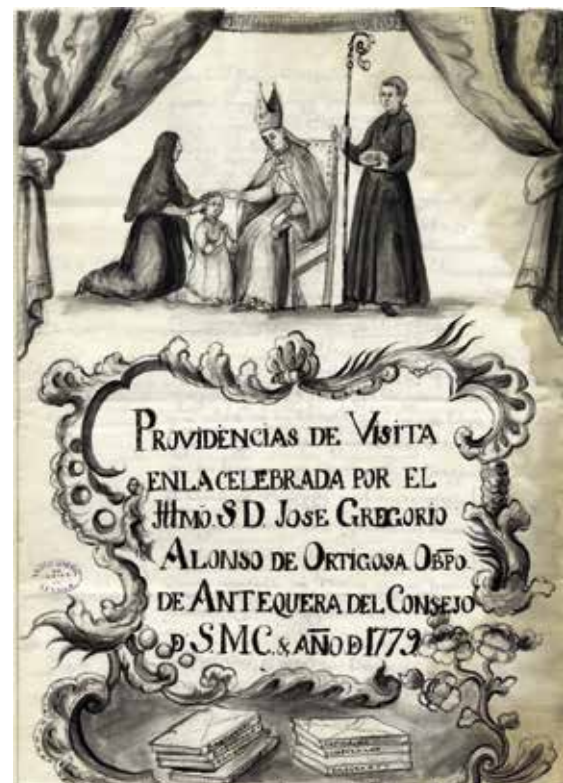 PROVIDENCIAS DE VISITA
EN LA CELEBRADA POR EL
Illmo. S D. JOSE GREGORIO
ALONSO DE ORTIGOSA OBPO.
DE ANTEQUERA DEL CONSEJO
D S.M.C. & AÑO D 1779